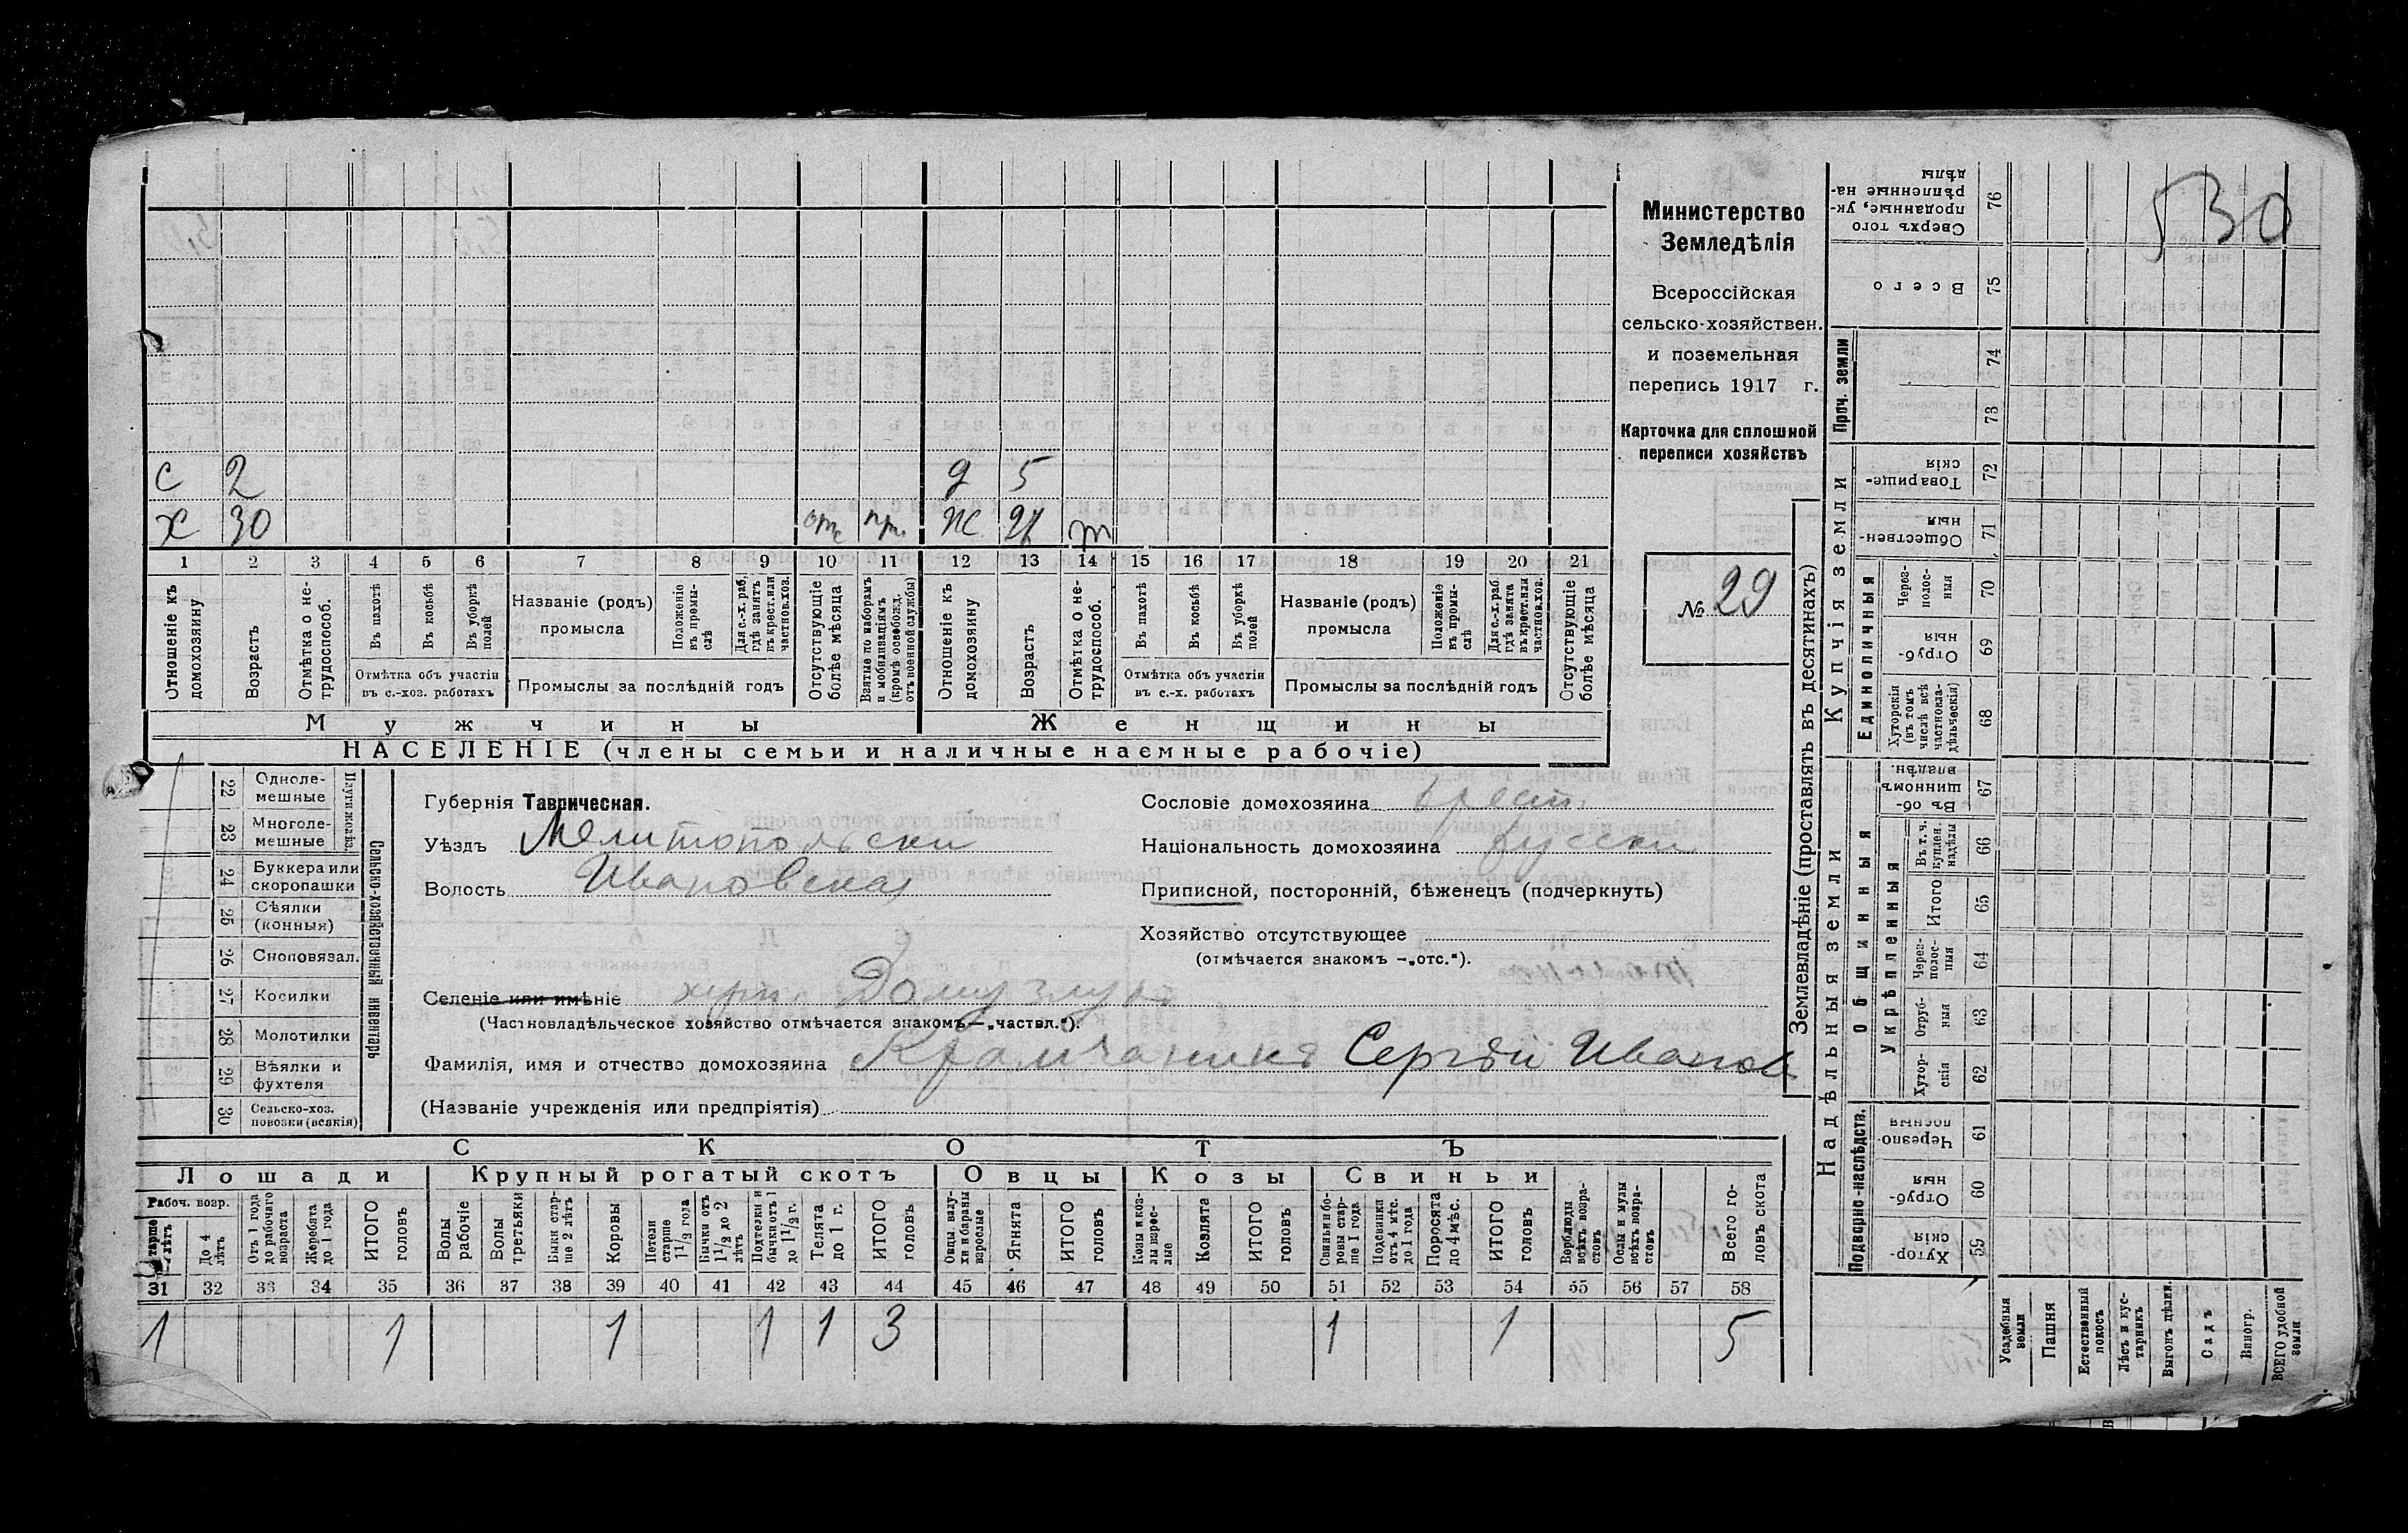 530
Министерство
Земледѣлія
Всероссійская
сельско-хозяйствен.
и поземельная
перепись 1917 г.
Карточка для сплошной
переписи хозяйствъ
№ 29
с 2 д 5
х 30 отс пт. ж 21 т
1 2 3 4 5 6 7 8 9 10 11 12 13 14 15 16 17 18 19 20 21
Отношеніе къ домохозяину
Возрастъ
Отмѣтка о не-трудоспособ.
Въ пахотѣ
Въ косьбѣ
Въ уборкѣ полей
Отмѣтка объ участіи
въ с.-хоз. работахъ
Названіе (родъ)
промысла
Положеніе въ промы-слѣ
Для с.-х. раб, гдѣ занятъ въ крест.или частнов.хоз.
Промыслы за послѣдній годъ
Отсутствующіе болѣе мѣсяца
Взятые по наборамъ и мобилизаціямъ (кромѣ освобожд. отъ военной службы)
Отношеніе къ домохозяину
Возрастъ
Отмѣтка о не-трудоспособ.
Въ пахотѣ
Въ косьбѣ
Въ уборкѣ полей
Отмѣтка объ участіи
въ с.-х. работахъ
Названіе (родъ)
промысла
Положеніе въ промы-слѣ
Для с.-х. раб гдѣ занята въ крест.или частнов.хоз.
Промыслы за послѣдній годъ
Отсутствующіе болѣе мѣсяца
Мужчины Женщины
НАСЕЛЕНІЕ (члены семьи и наличные наемные рабочіе)
22 Одноле-мешные
23 Многоле-мешные
24 Буккера или скоропашки
25 Сѣялки (конныя)
26 Сноповязал.
27 Косилки
28 Молотилки
29 Вѣялки и фухтеля
30 Сельско-хоз. повозки (всякія)
Сельско-хозяйственный инвентарь
Губернія Таврическая.
Уѣздъ Мелитопольски
Волость Ивановская
Селеніе или имѣніе
(Частновладѣльческое хозяйство отмѣчается знакомъ—„частвл.“).
Фамилія, имя и отчество домохозяина Сергѣй Иванов
(Названіе учрежденія или предпріятія)
Сословіе домохозяина крест.
Національность домохозяина русски
Приписной, посторонній, бѣженецъ (подчеркнуть)
Хозяйство отсутствующее
(отмѣчается знакомъ —„отс.“).
СКОТЪ
Лошади Крупный рогатый скотъ Овцы Козы Свиньи
Рабоч. возр.
До 4 лѣтъ
Отъ 1 года до рабочаго возраста
Жеребята до 1 года
ИТОГО головъ
Волы рабочіе
Волы третьяки
Быки стар-ше 2 лѣтъ
Коровы
Нетели старше 1½ года
Бычки отъ 1½ до 2 лѣтъ
Подтелки и бычки отъ 1 до 1½ г.
Телята до 1 г.
ИТОГО головъ
Овцы, валу-хи и бараны взрослые
Ягнята
ИТОГО головъ
Козы и коз-лы взрос-лые
Козлята
ИТОГО головъ
Свиньи и бо-ровы стар-ше 1 года
Подсвинки отъ 4 мѣс. до 1 года
Поросята до 4 мѣс.
ИТОГО головъ
Верблюды всѣхъ возра-стовъ
Ослы и мулы всѣхъ возра-стовъ
Всего го-ловъ скота
31 32 33 34 35 36 37 38 39 40 41 42 43 44 45 46 47 48 49 50 51 52 53 54 55 56 57 58
1 1 1 1 1 3 1 1 5
Землевладѣніе (проставлять въ десятинахъ)
Надѣльныя земли
Купчія земли
Проч. земли
Подворно-наслѣдств.
Общинныя
Укрѣпленныя
Единоличныя
Сверхъ того проданные, ук-рѣпленные на-дѣлы 76
Всего 75
74
73
Товарище-скія 72
Обществен-ныя 71
Через-полос-ныя 70
Отруб-ныя 69
Хуторскія (въ томъ числѣ всѣ частновла-дѣльческія) 68
Въ об-щинномъ владѣн. 67
Въ т. ч. куплен. надѣлы 66
Итого 65
Через-полос-ныя 64
Отруб-ныя 63
Хутор-скія 62
Черезпо-лосныя 61
Отруб-ныя 60
Хутор-скія 59
Усадебныя земли
Пашня
Естественный покосъ
Лѣсъ и кус-тарникъ
Садъ
Виногр.
ВСЕГО удобной земли